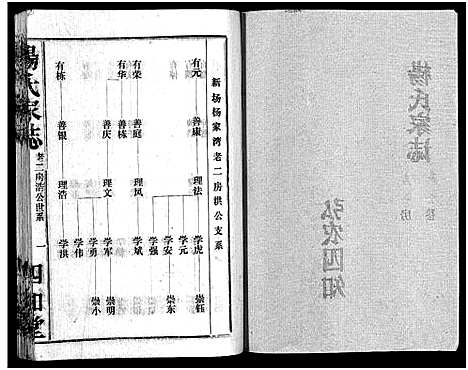 楊氏家誌
弘农四知
新场杨家湾老二房洪公支系
有元 善康 理法 学虎 崇钰
学元
学安 崇东
学强
有荣 善庭 理凤 学斌
有华 善栋
善庆 理文 学军 崇明
学勇 崇小
学伟
有栋 善银 理浩 学洪
楊氏家誌
老二房洪公世系
一
四知堂